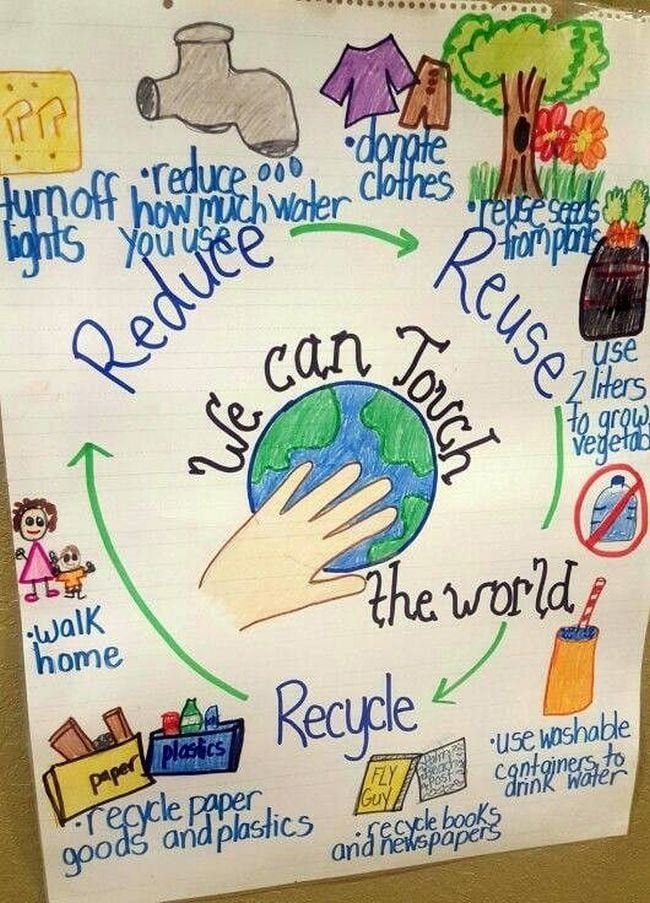 turn off
lights
•reduce
how much water
you use
•donate
clothes
•reuse seeds
from plants
Reduce
Reuse
use
2 liters
to grow
vegetab
We can Touch
the world
•walk
home
Recycle
paper
plastics
•recycle paper
goods and plastics
FLY
GUY
Palm
Beach
Post
•recycle books
and newspapers
•use washable
containers to
drink water